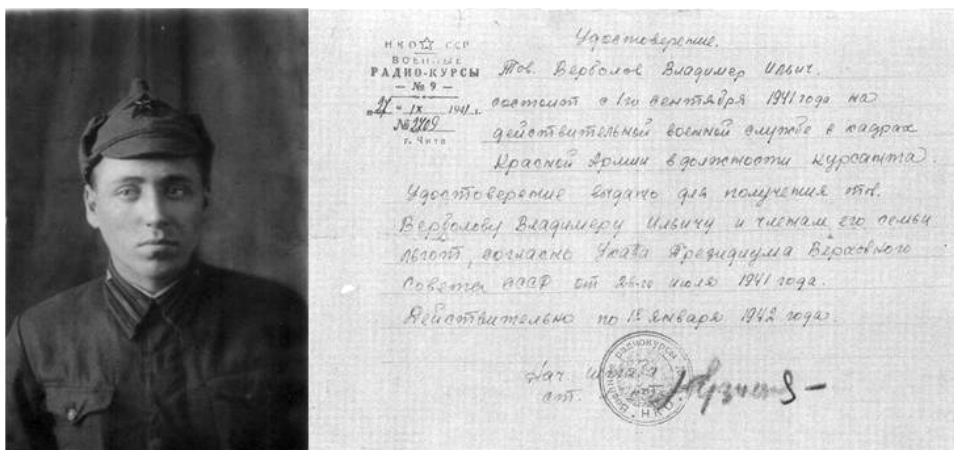 НКО ССР
ВОЕННЫЕ
РАДИО-КУРСЫ
— № 9 —
"27" IX 1941 г.
№ 2709
г. Чита
Удостоверение.
Тов. Верволов Владимер Ильич.
состоит с 1го сентября 1941 года на
действительной военной службе в кадрах
Красной Армии в должности курсанта.
Удостоверение выдано для получения тов.
Верволову Владимеру Ильичу и членам его семьи
льгот, согласно Указа Президиума Верховного
Совета СССР от июля 1941 года.
Действительно по 1е января 1942 года.
Нач. штаба
ст.
радиокурсы
НКО